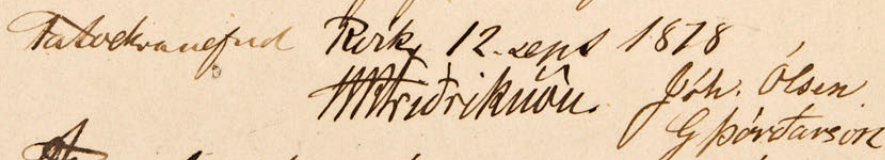 Fátækranefnd Rvík, 12. sept 1878
HKFriðriksson. Jóh. Ólsen
G Þórðarson